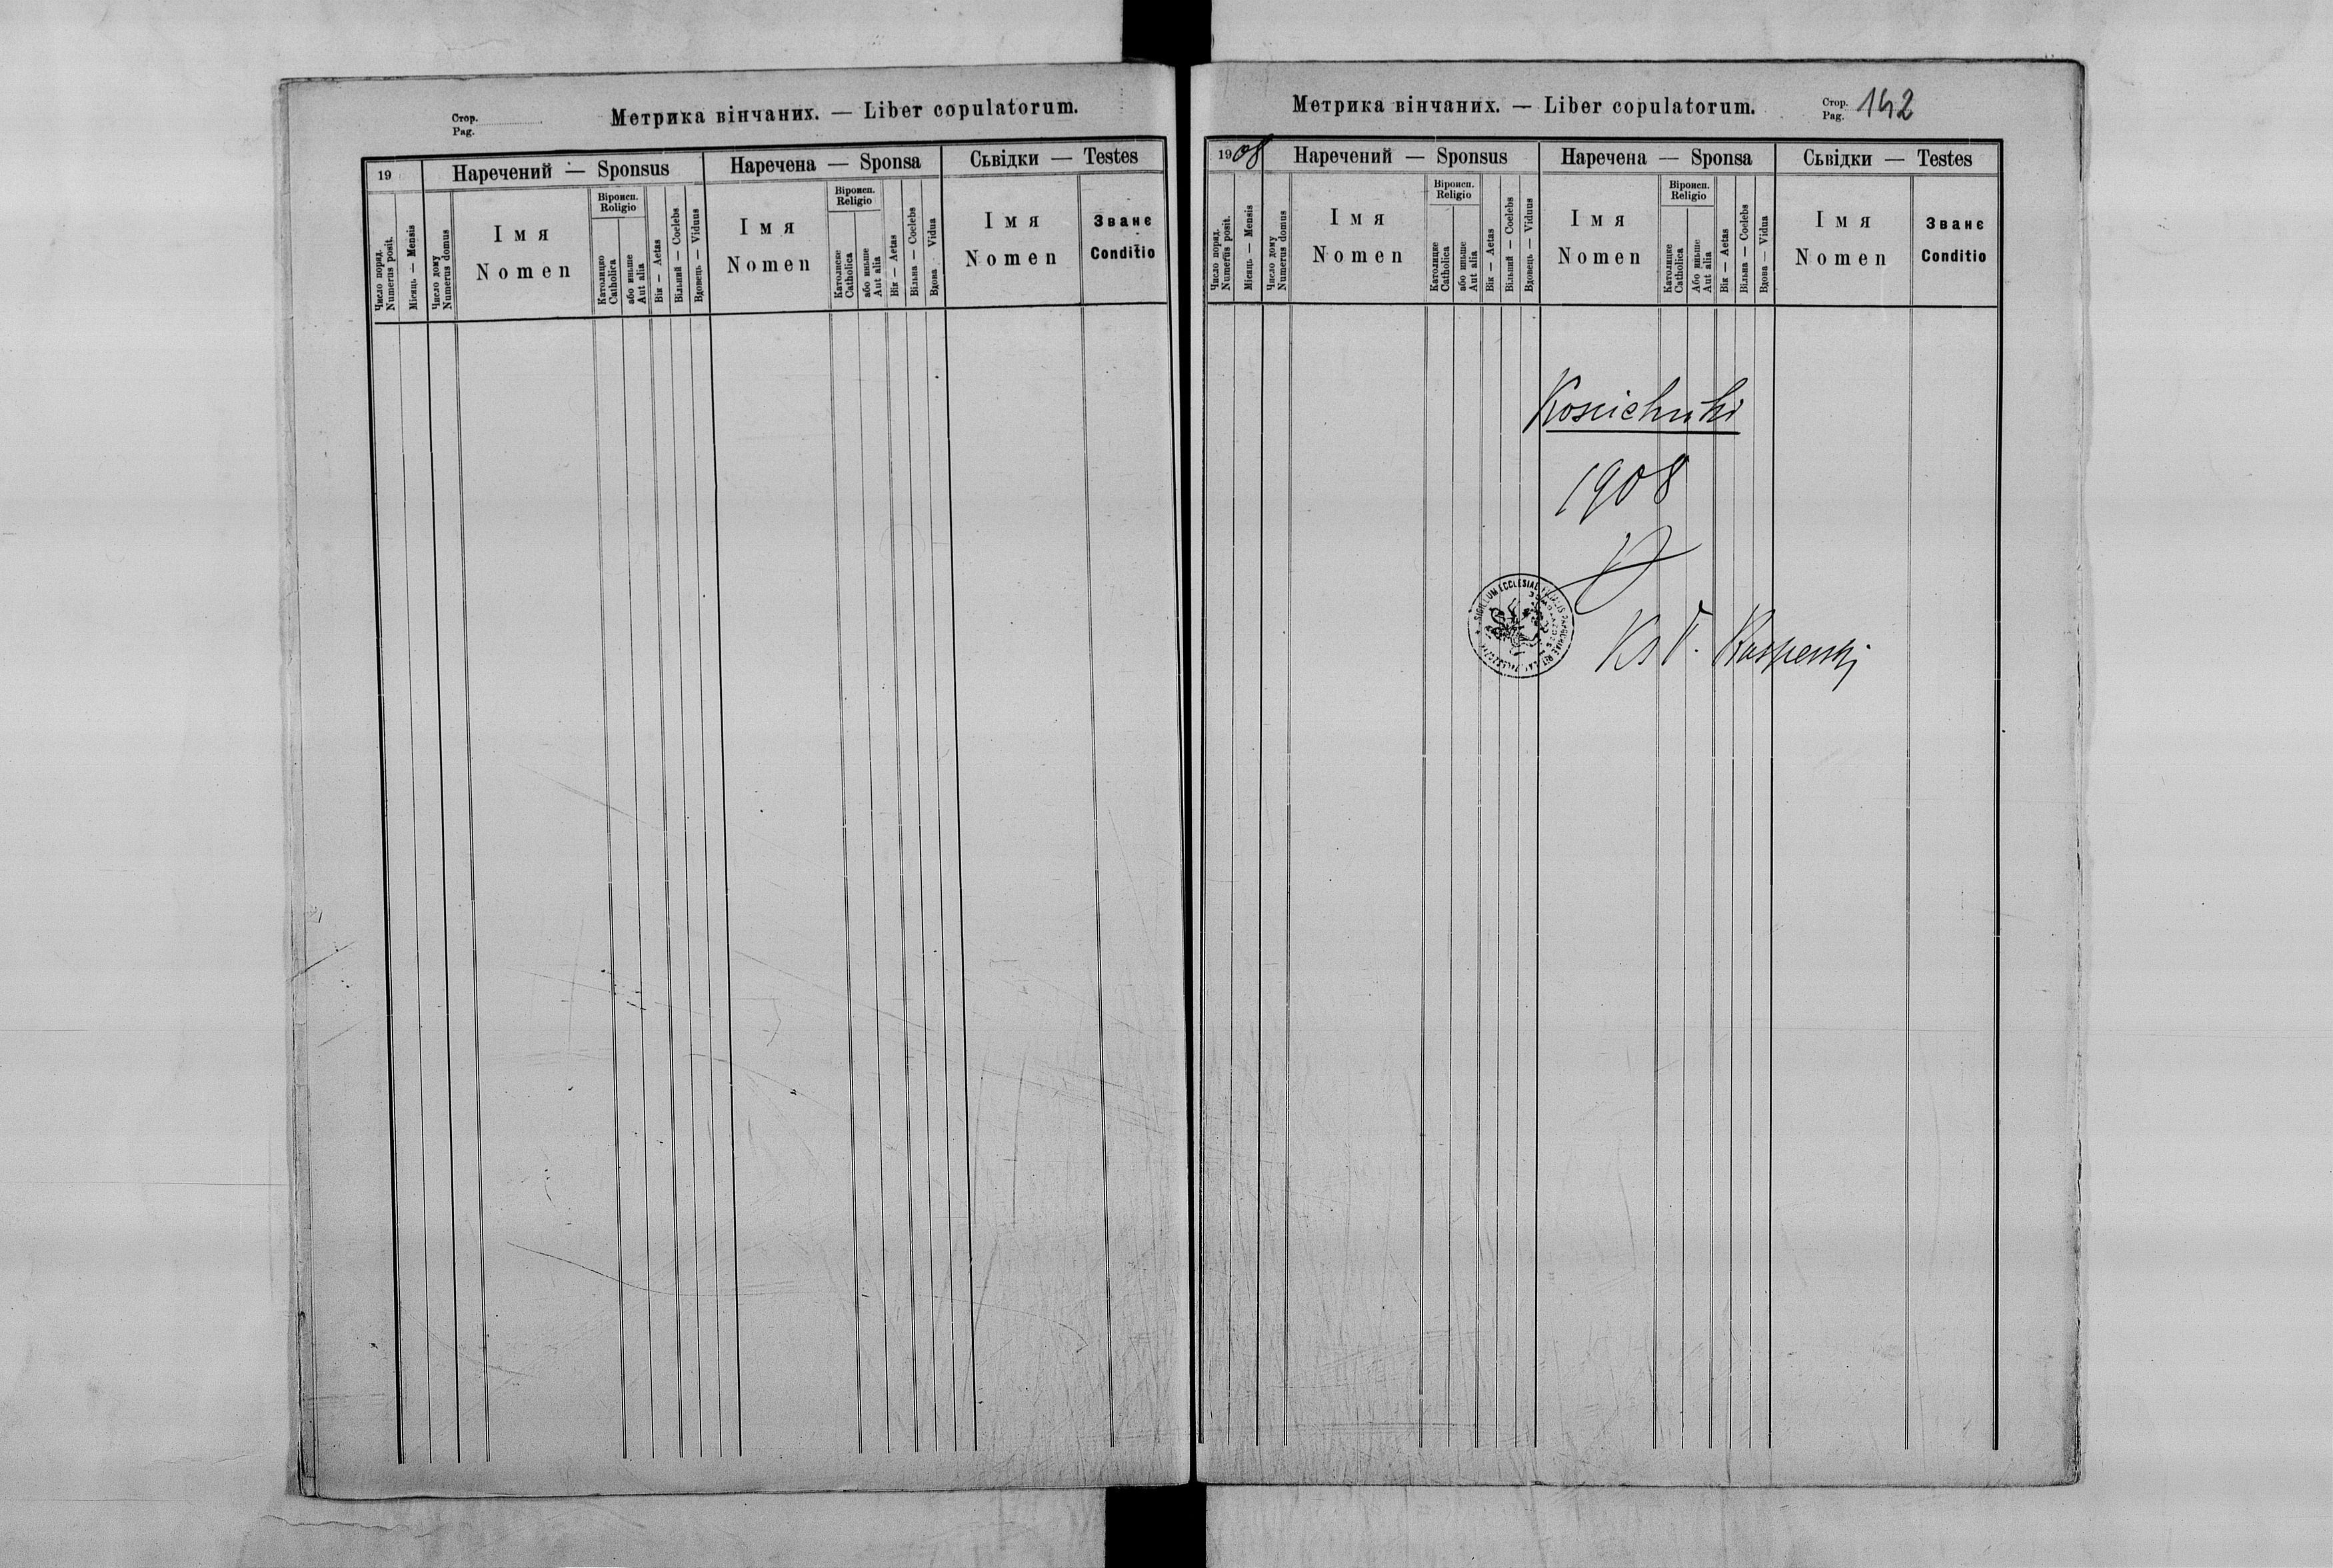 Стор.
Pag.
Метрика вінчаних. — Liber copulatorum.
19
Наречений — Sponsus
Наречена — Sponsa
Сьвідки — Testes
Число поряд.
Numerus posit.
Місяць — Mensis
Число дому
Numerus domus
Імя
Nomen
Віроисп.
Religio
Католицко
Catholica
або иньше
Aut alia
Вік — Aetas
Вільний — Coelebs
Вдовець — Viduus
Імя
Nomen
Віроисп.
Religio
Католиске
Catholica
або иньше
Aut alia
Вік — Aetas
Вільна — Coelebs
Вдова — Vidua
Імя
Nomen
Званє
Conditio
Метрика вінчаних. — Liber copulatorum.
Стор.
Pag.
142
1908
Наречений — Sponsus
Наречена — Sponsa
Сьвідки — Testes
Число поряд.
Numerus posit.
Місяць — Mensis
Число дому
Numerus domus
Імя
Nomen
Віроисп.
Religio
Католицке
Catholica
або иньше
Aut alia
Вік — Aetas
Вільний — Coelebs
Вдовець — Viduus
Імя
Nomen
Віроисп.
Religio
Католицке
Catholica
Або иньше
Aut alia
Вік — Aetas
Вільна — Coelebs
Вдова — Vidua
Імя
Nomen
Званє
Conditio
1908
SIGILLUM ECCLESIAE